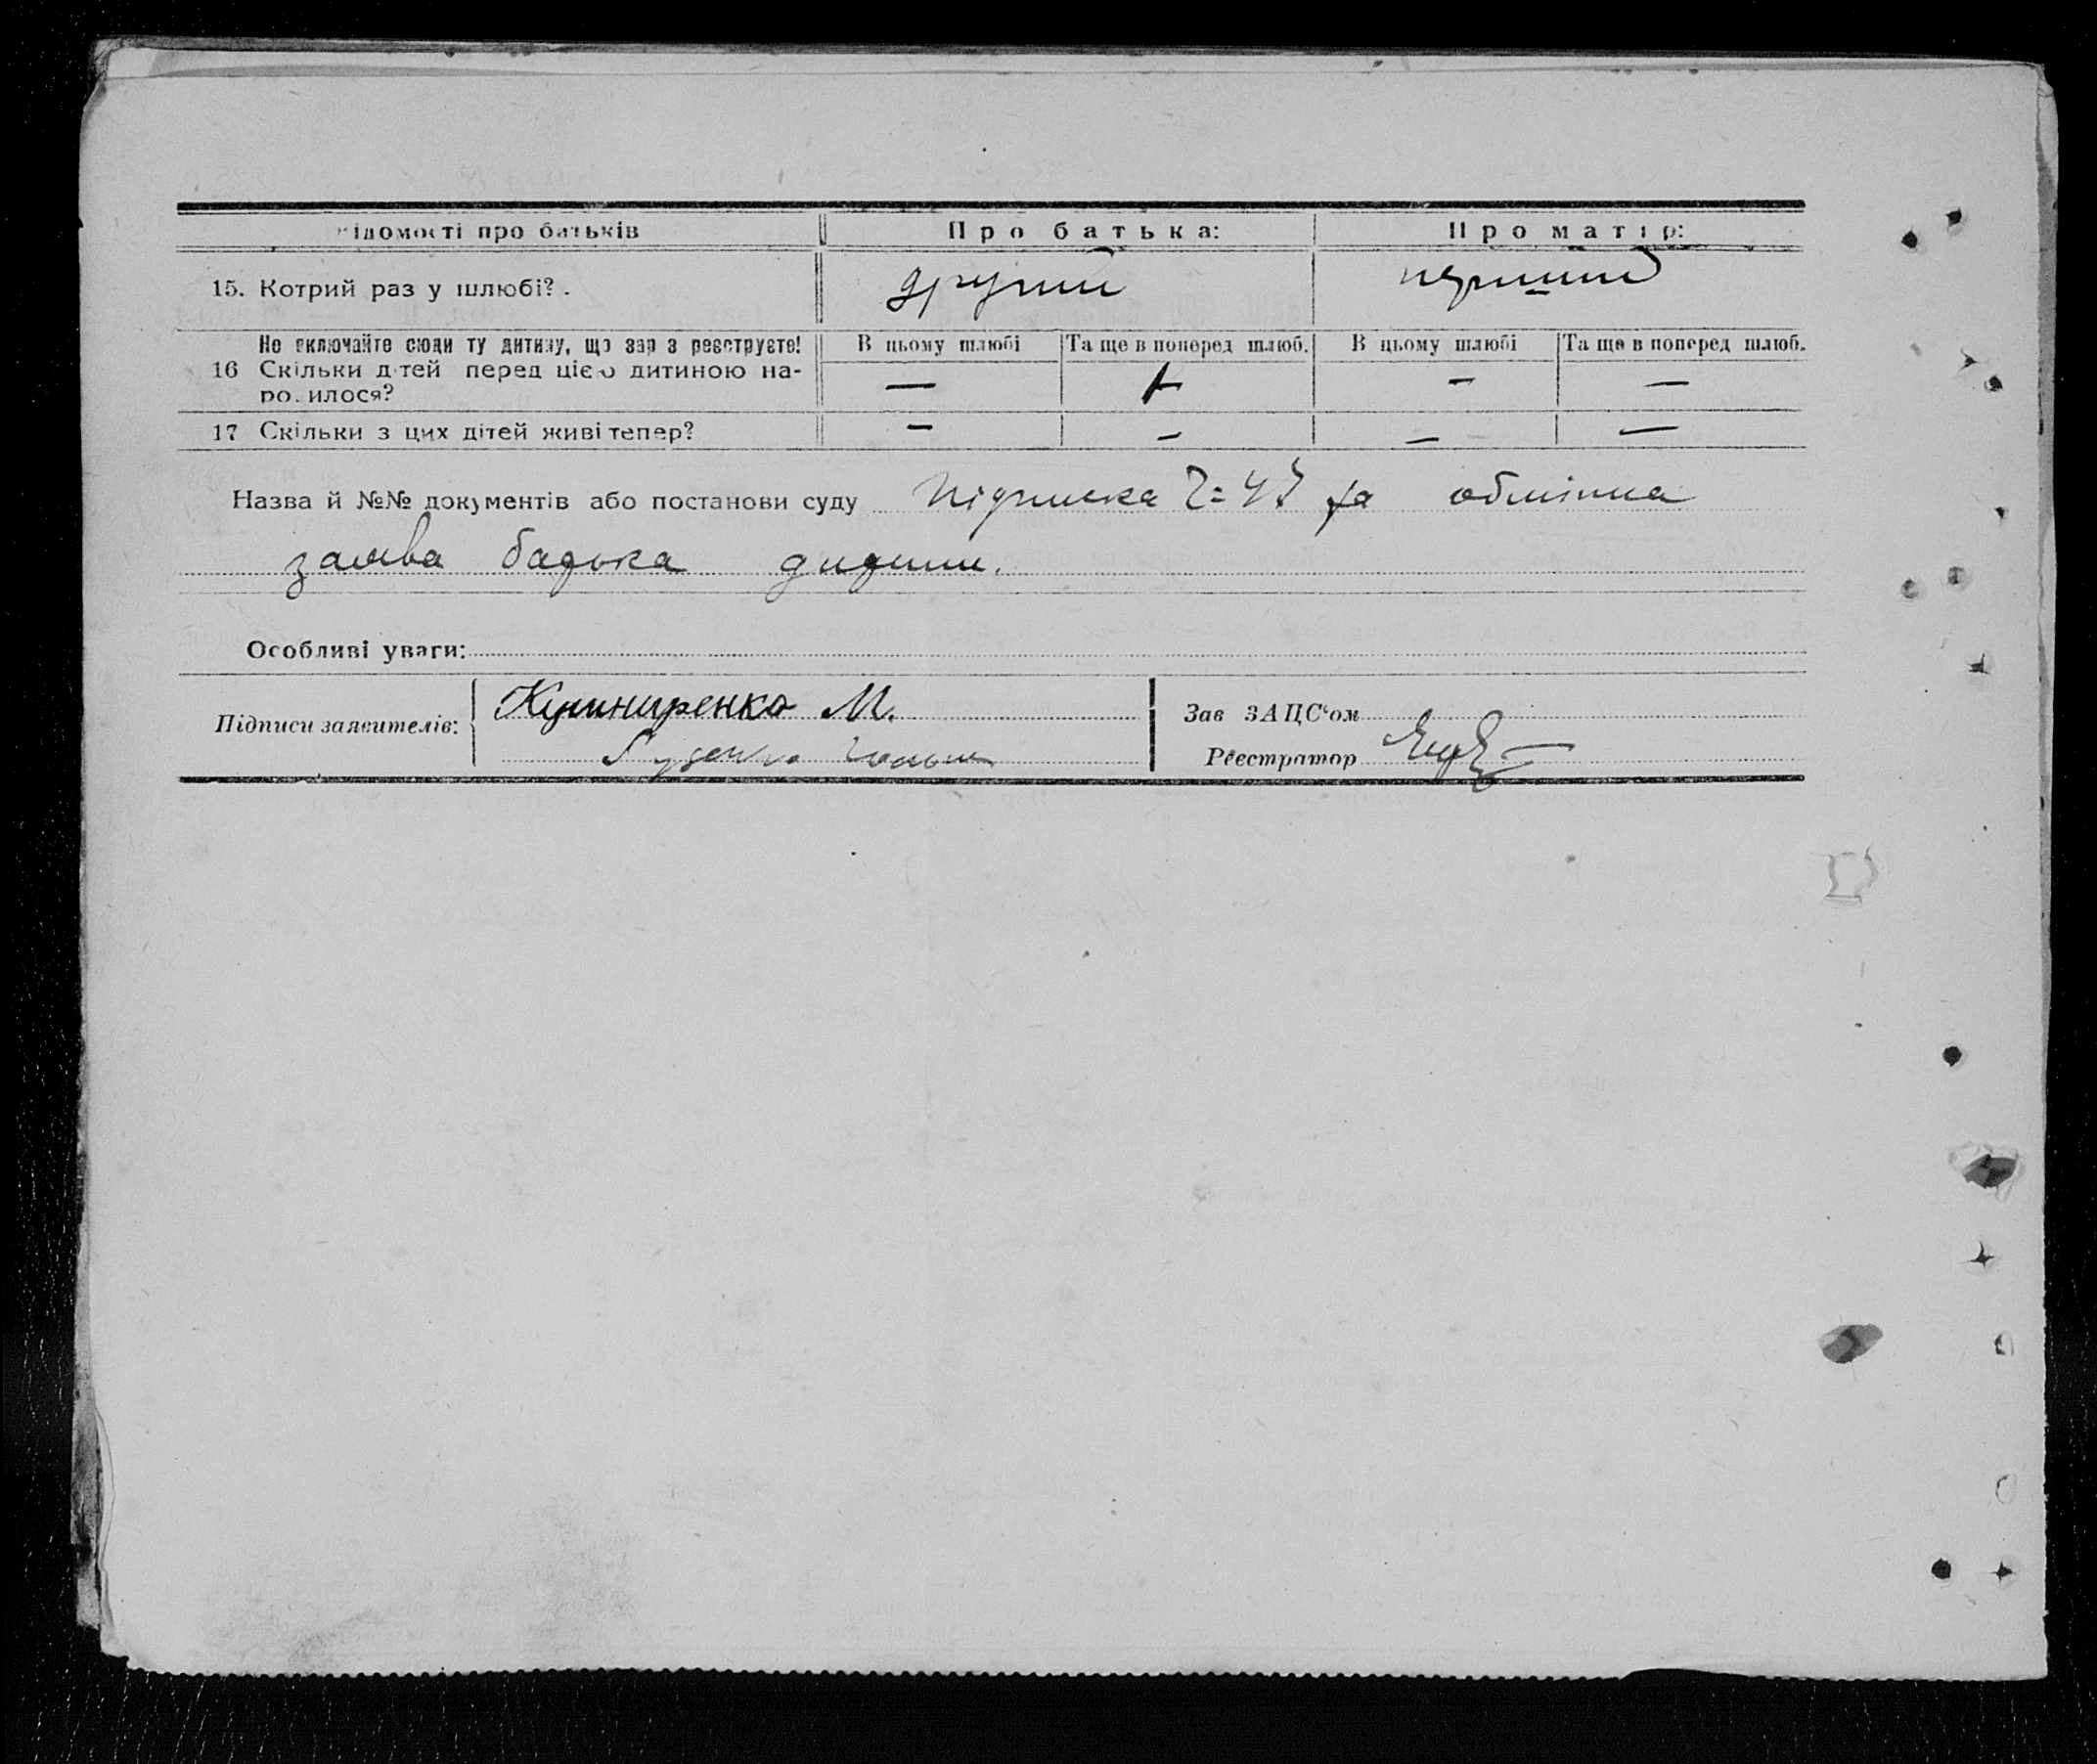 ідомості про батьків Про батька: Про матір:
15. Котрий раз у шлюбі? . другий перший
Не включайте сюди ту дитину, що зар з реєструєте! В цьому шлюбі Та ще в поперед шлюб. В цьому шлюбі Та ще в поперед шлюб.
16 Скільки дтей перед цією дитиною на-
ро. илося? — — —
17 Скільки з цих дітей живі тепер? — — — —
Назва й №№ документів або постанови суду Підписка та
заява батька дитини.
Особливі уваги:
Підписи заявителів: Кушниренко М. Зав ЗАЦС‘ом
Реєстратор